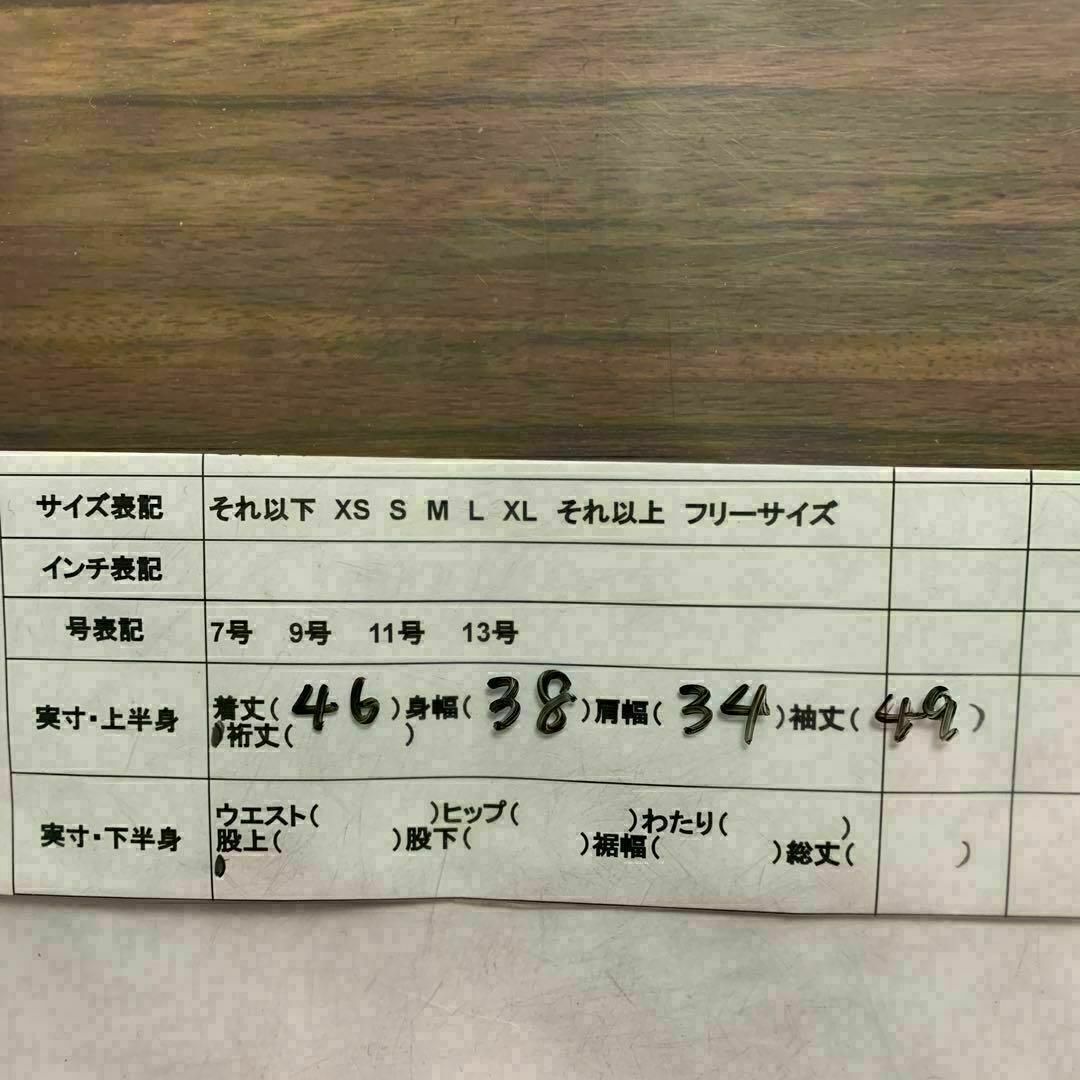 サイズ表記 それ以下 XS S M L XL それ以上 フリーサイズ
インチ表記
号表記 7号 9号 11号 13号
実寸・上半身 着丈( 46 )身幅( 38 )肩幅( 34 )袖丈( 49 )
)裄丈( )
実寸・下半身 ウエスト( )ヒップ( )わたり( )
股上( )股下( )裾幅( )総丈( )
)